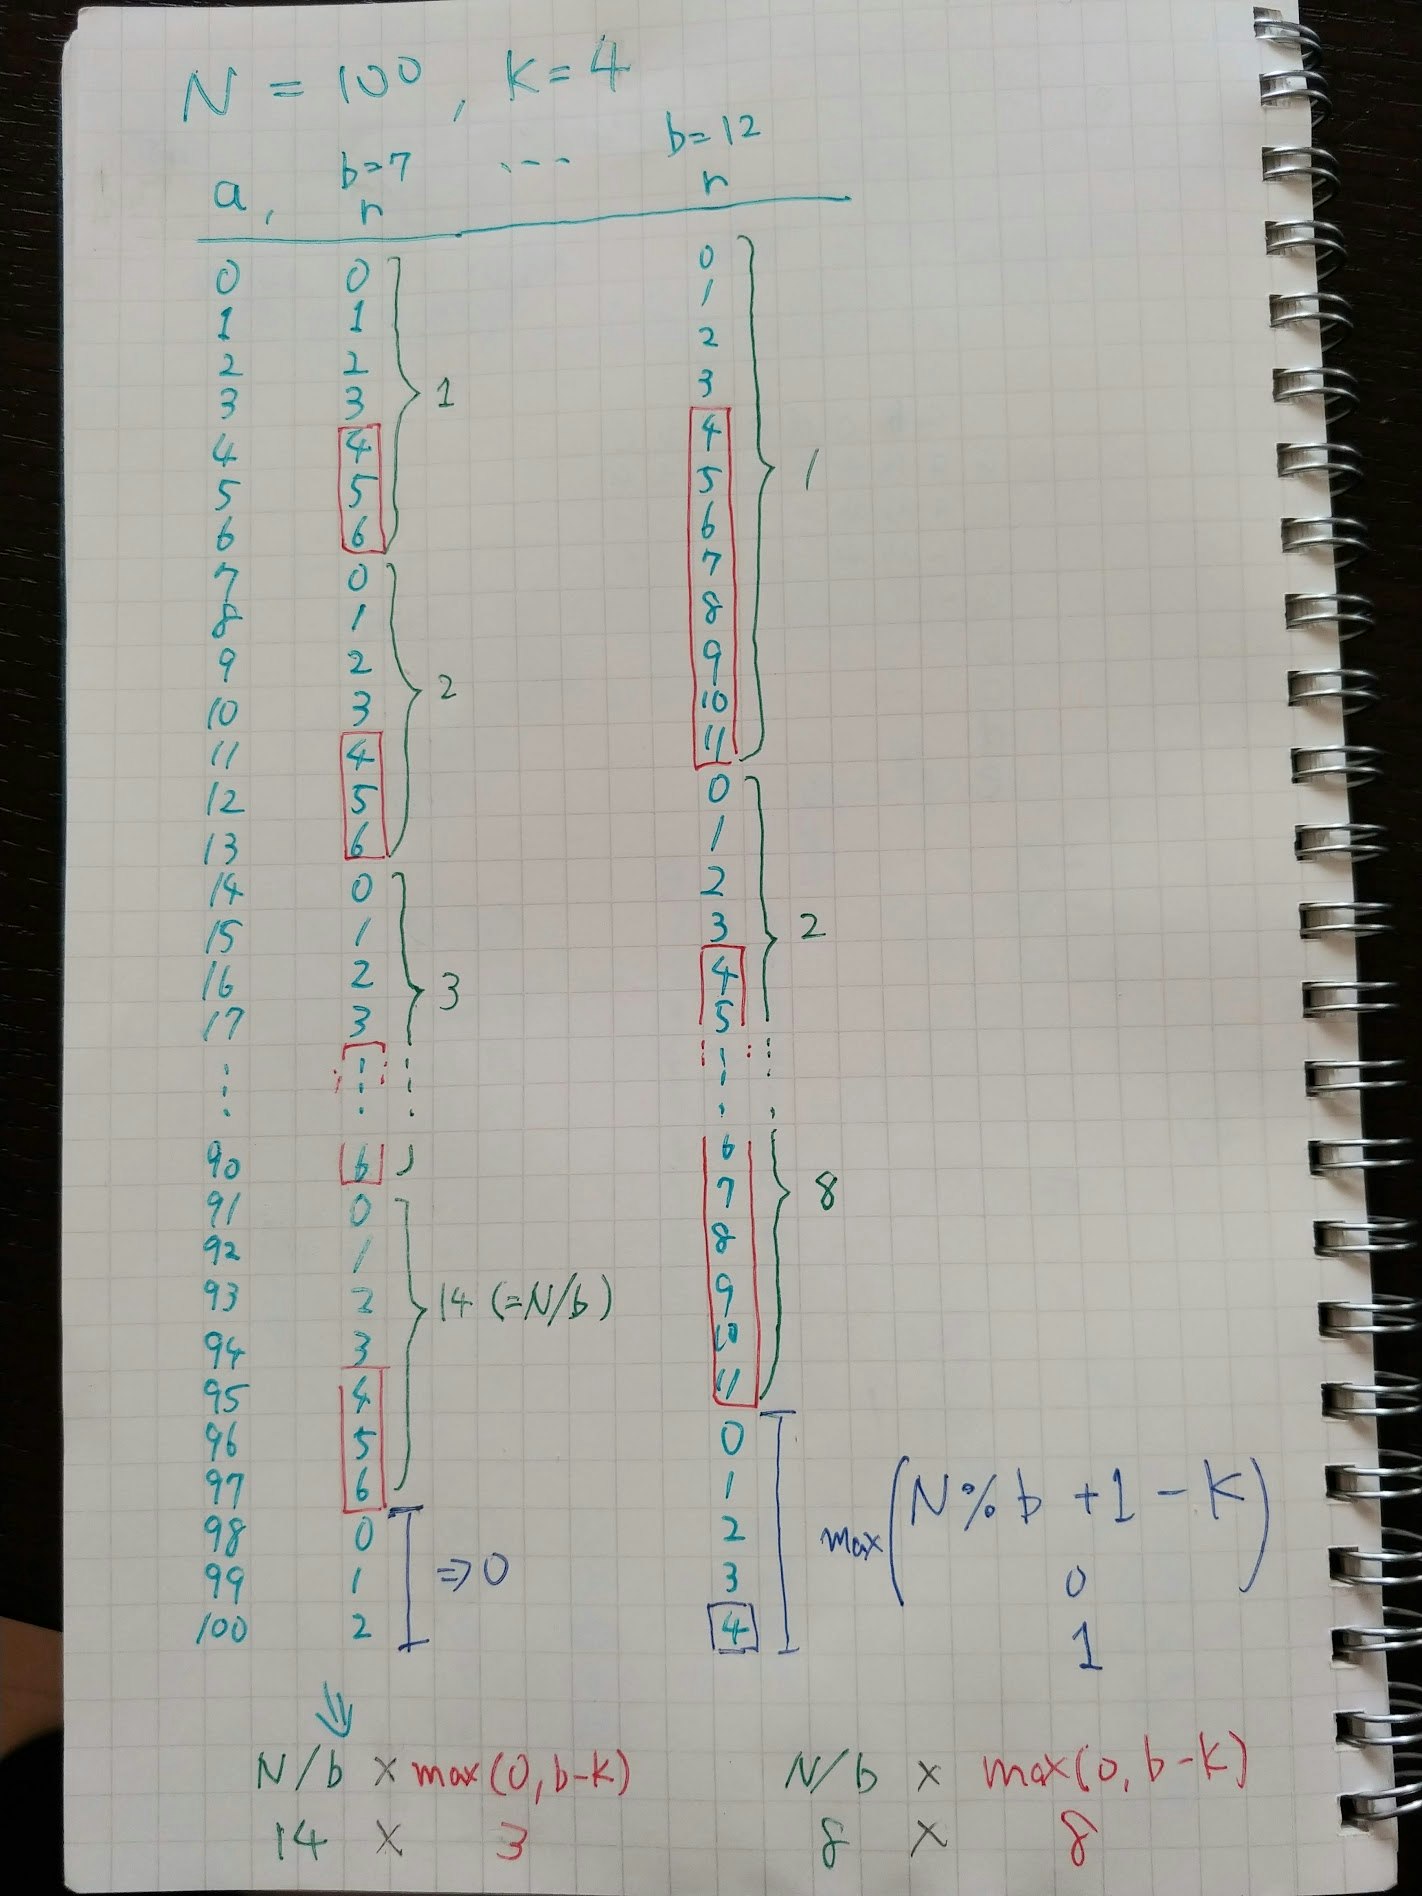 N = 100, K = 4
b=7 ... b=12
a, r r
0 0 0
1 1 1
2 2 2
3 3 1 3
4 4 4
5 5 5 1
6 6 6
7 0 7
8 1 8
9 2 9
10 3 2 10
11 4 11
12 5 0
13 6 1
14 0 2
15 1 3 2
16 2 3 4
17 3 5
⋮ ⋮ ⋮ ⋮ ⋮
90 6 6
91 0 7 8
92 1 8
93 2 14 (=N/b) 9
94 3 10
95 4 11
96 5 0
97 6 1 max(N%b +1-K
98 0 2
99 1 ⇒0 3 0)
100 2 4 1
N/b × max(0, b-K) N/b × max(0, b-K)
14 × 3 8 × 8